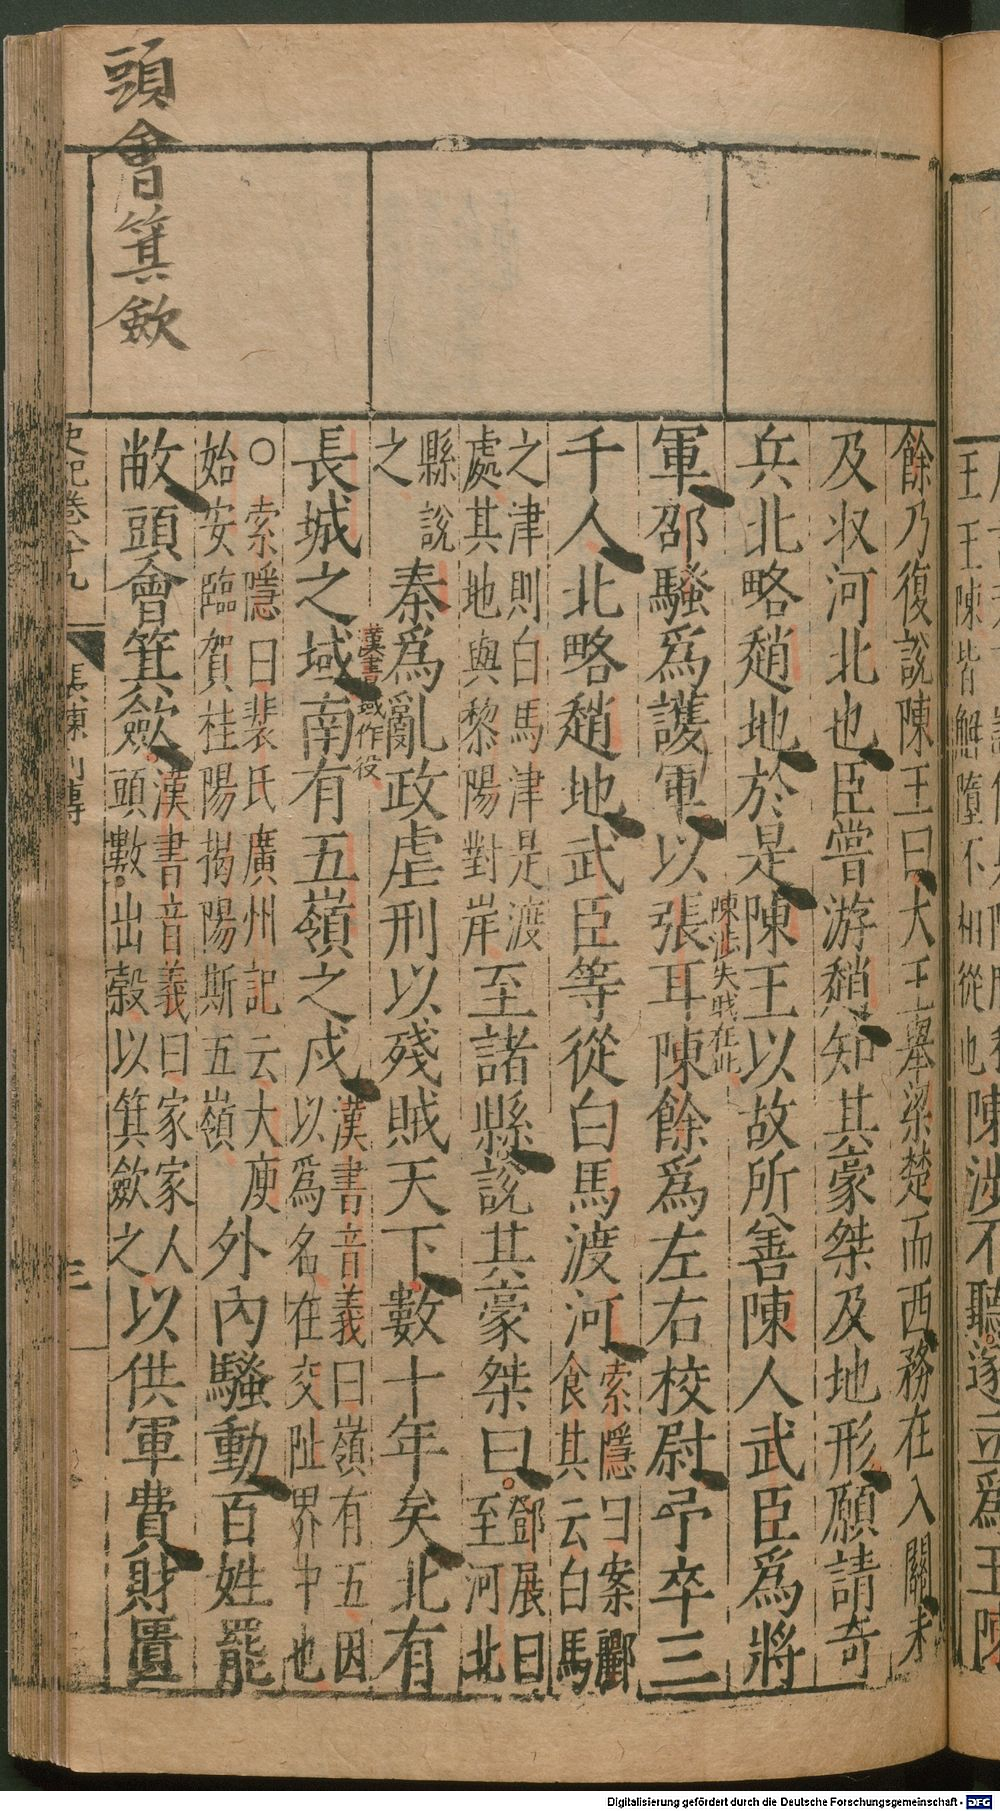 王王陳皆觧墮不相從也陳涉不聽遂立爲王陳
餘乃復說陳王曰大王舉梁楚而西務在入關未
及収河北也臣嘗游趙知其豪桀及地形願請奇
兵北略趙地於是陳王以故所善陳人武臣爲將
軍邵騷爲護軍以張耳陳餘爲左右校尉予卒三
千人北略趙地武臣等從白馬渡河索隱曰案酈食其云白馬
之津則白馬津是渡處其地與黎陽對岸至諸縣說其豪桀曰鄧展曰至河北
縣說之秦爲亂政虐刑以殘賊天下數十年矣北有
漢書域作役
長城之域南有五嶺之戍漢書音義曰嶺有五因以爲名在交阯界中也
○索隱曰裴氏廣州記云大庾始安臨賀桂陽揭陽斯五嶺外內騷動百姓罷
敝頭會箕歛漢書音義曰家家人頭數出穀以箕歛之以供軍費財匱
頭會箕歛
史記卷八十九 張陳列傳 三
Digitalisierung gefördert durch die Deutsche Forschungsgemeinschaft - DFG